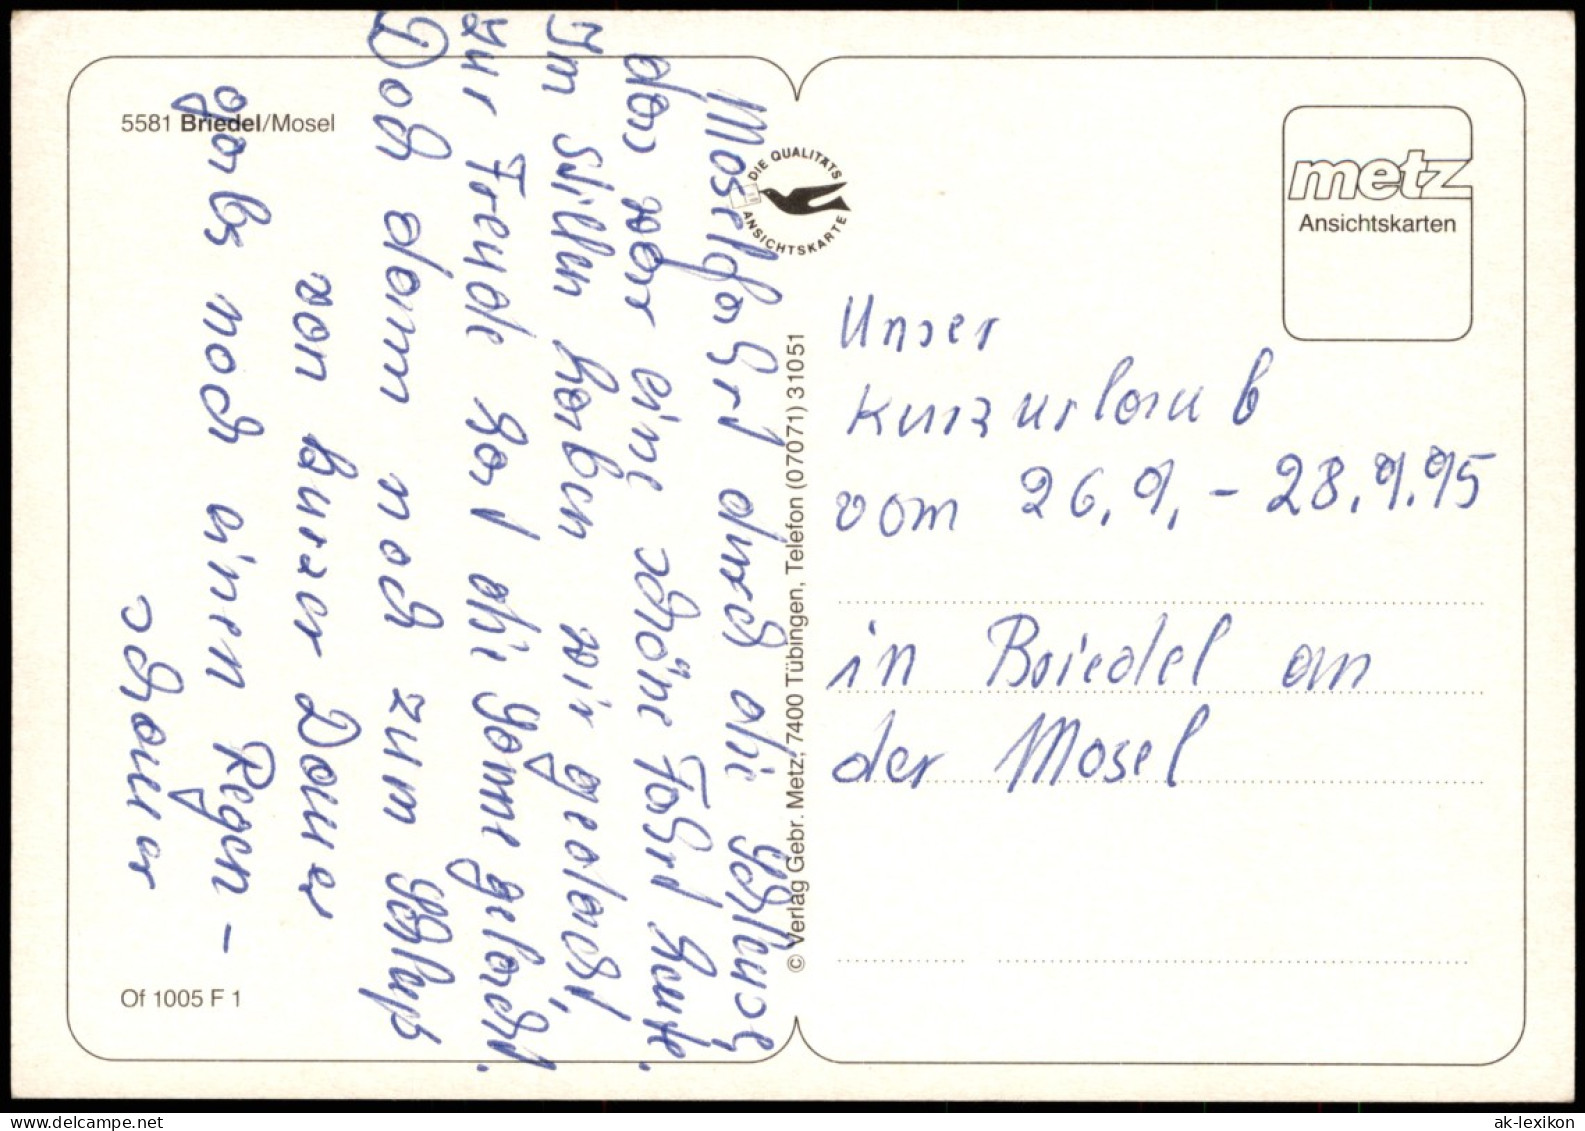 5581 Briedel/Mosel
Moselfahrt durch die Schleuse,
das war eine schöne Fahrt heute.
Im Stillen haben wir gedacht,
zur Freude hat die Sonne gelacht.
Doch dann noch zum Schluß
von kurzer Dauer
gabs noch einen Regen-
schauer
Of 1005 F 1
DIE QUALITÄTS
ANSICHTSKARTE
© Verlag Gebr. Metz, 7400 Tübingen, Telefon (07071) 31051
metz
Ansichtskarten
Unser
Kurzurlaub
vom 26.9.-28.9.95
in Briedel an
der Mosel
ak-lexikon